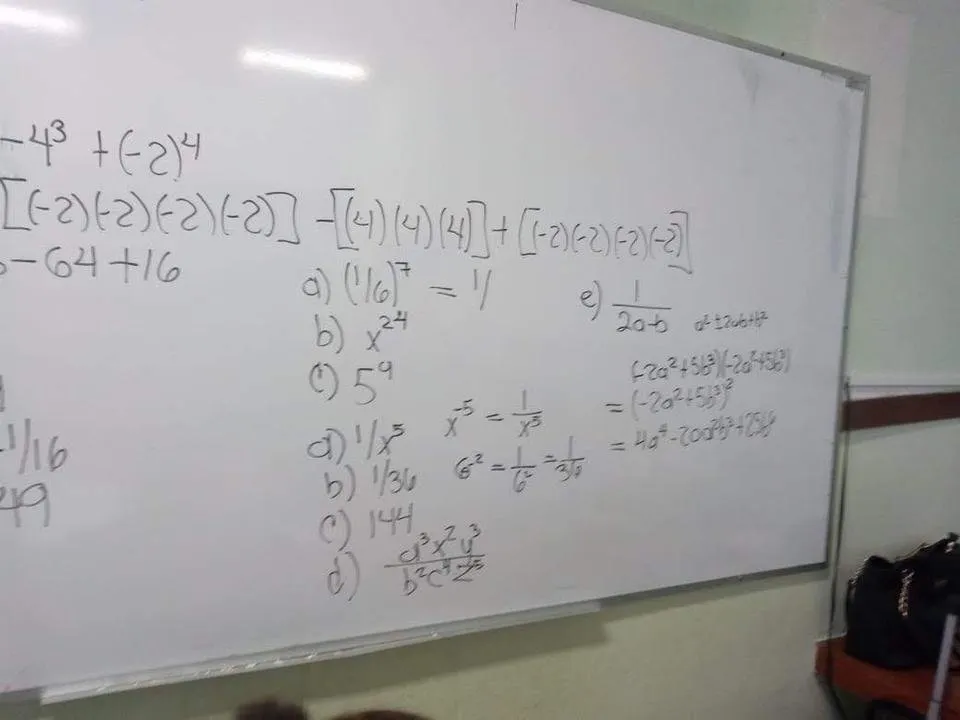 -4³ + (-2)⁴
[(-2)(-2)(-2)(-2)] - [(4)(4)(4)] + [(-2)(-2)(-2)(-2)]
- 64 + 16
a) (1/6)⁷ = 1/
b) x²⁴
c) 5⁹
a) 1/x⁵
x⁻⁵ = 1/x⁵
b) 1/36
6⁻² = 1/6² = 1/36
c) 144
d) a³x²y³/b²c⁴z⁵
e) 1/2a-b
a² ± 2ab + b²
(-2a² + 5b³)(-2a² + 5b³)
= (-2a² + 5b³)²
= 4a⁴ - 20a²b³ + 25b⁶
1/16
49